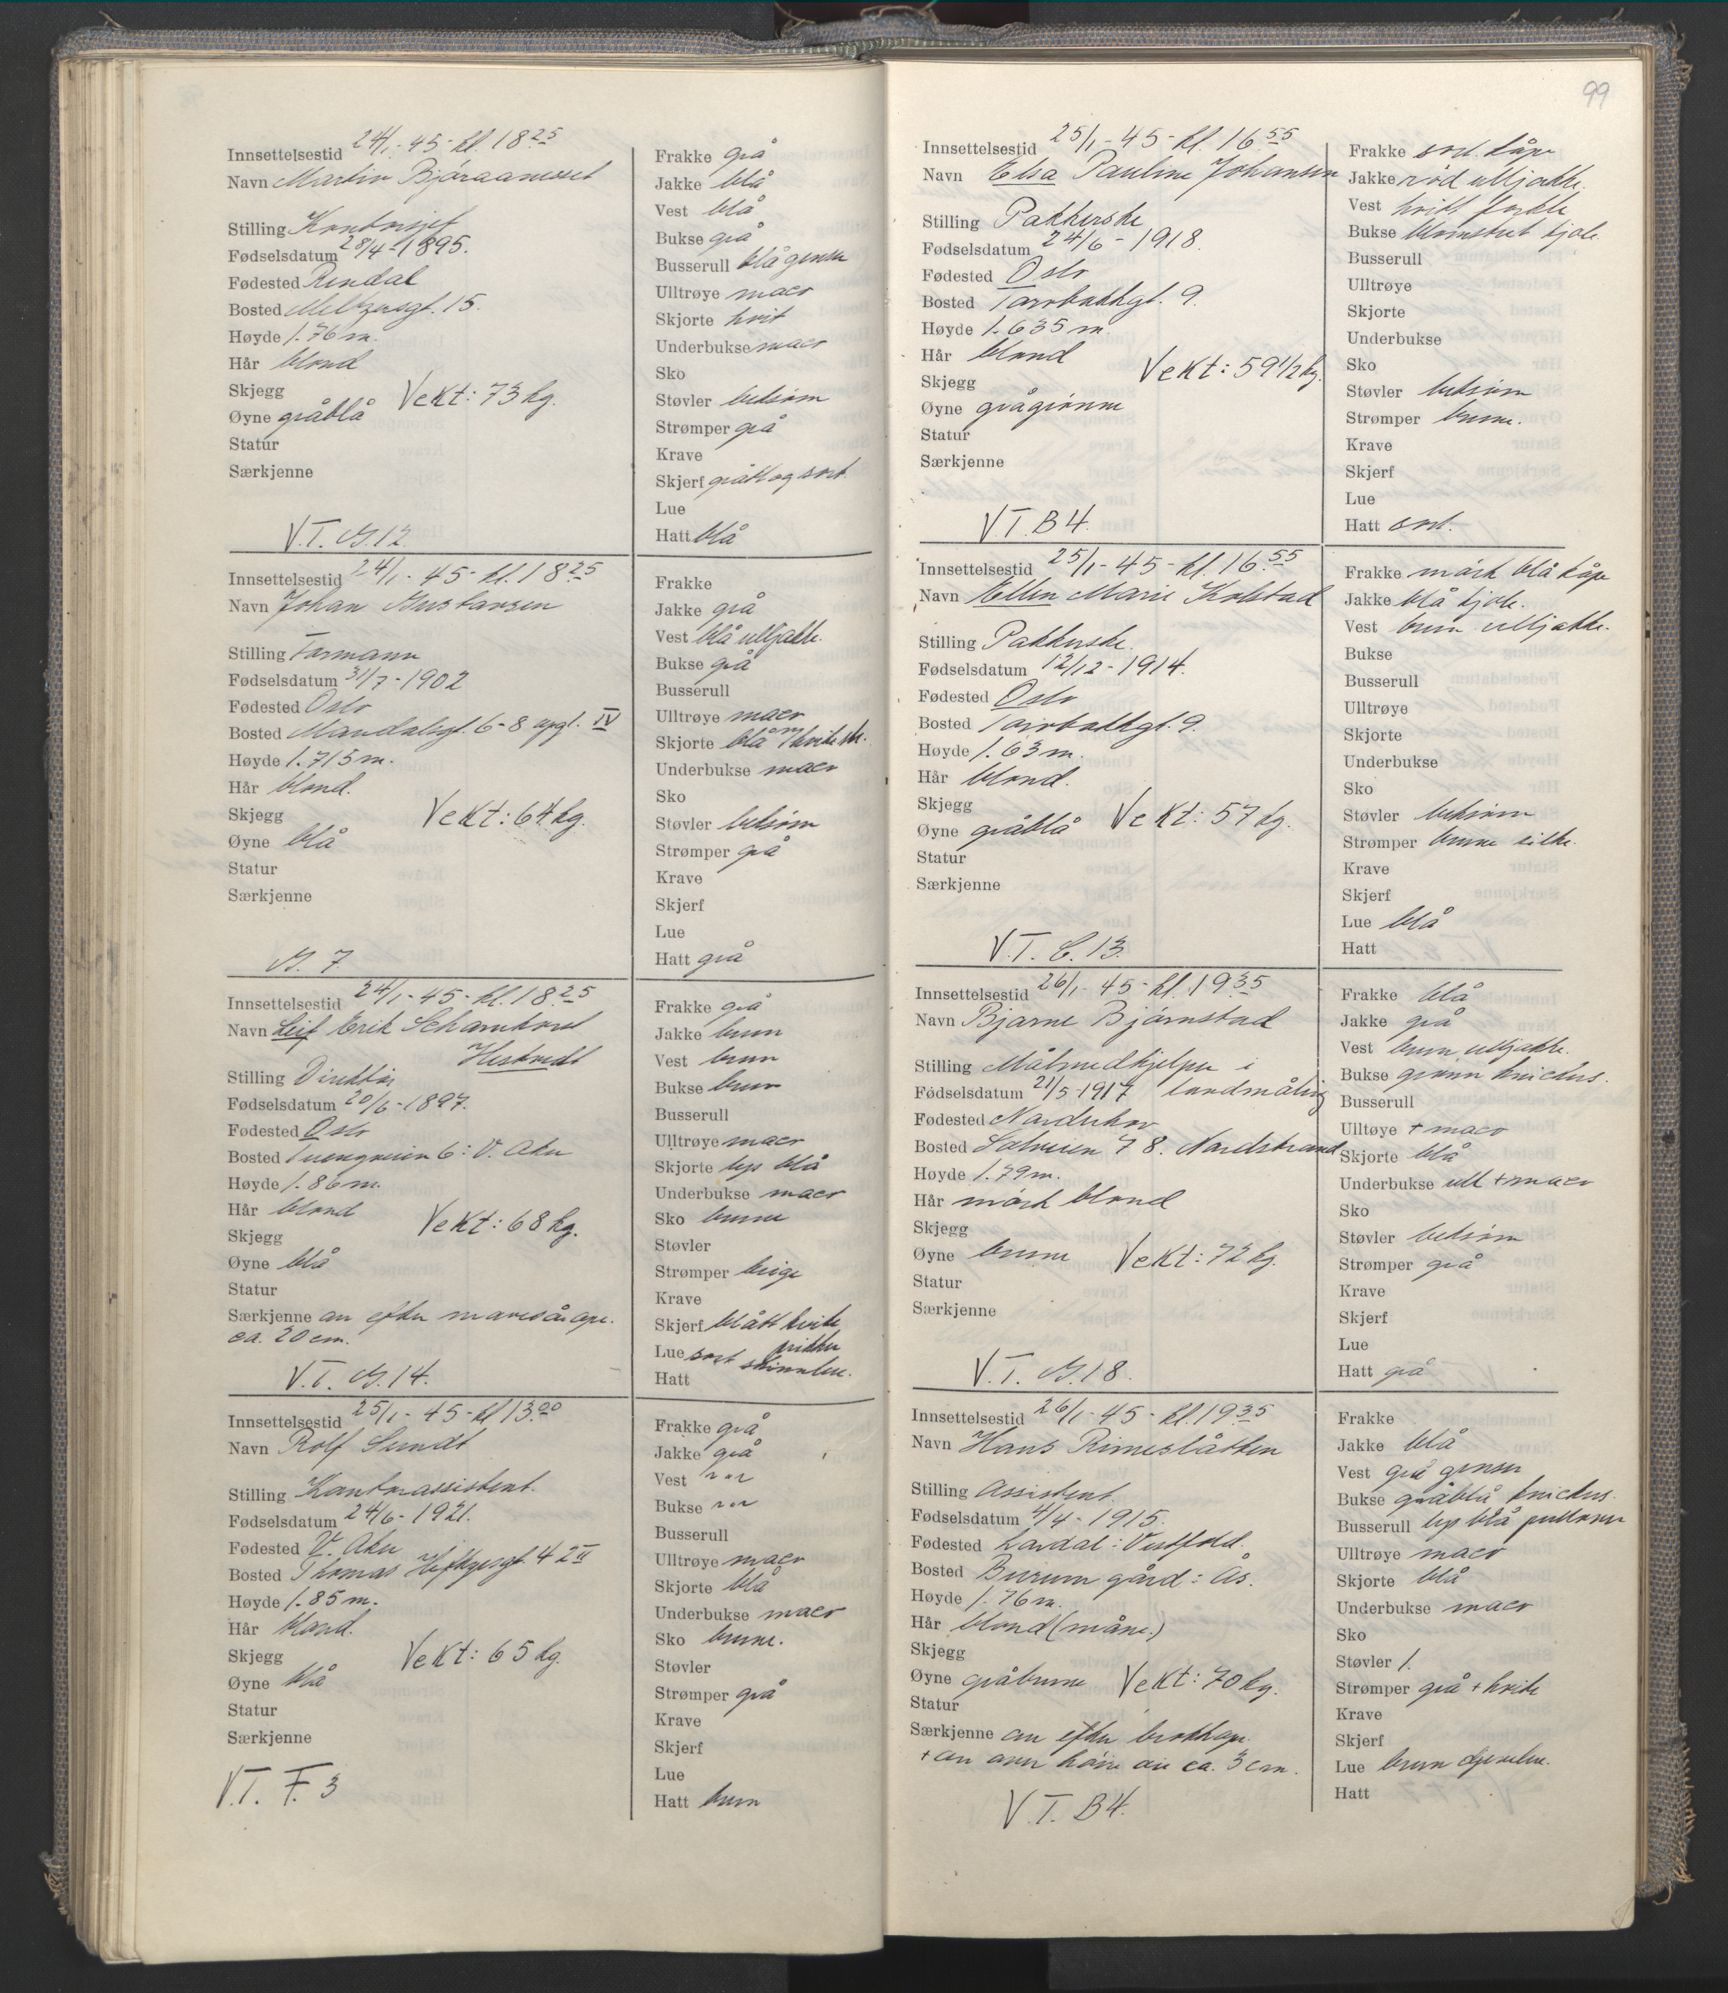 Innsettelsestid 24/1-45- kl. 18 25
Navn Martin
Stilling Kontorsjef
Fødselsdatum 28/4-1895.
Fødested Rindal
Bosted Meltzersgt. 15.
Høyde 1.76 m.
Hår blond
Skjegg
Vekt: 73 kg.
Øyne gråblå
Statur
Særkjenne
V.T. G.12
Frakke grå
Jakke blå
Vest blå
Bukse grå
Busserull blå genser
Ulltrøye maco
Skjorte hvit
Underbukse maco
Sko
Støvler beksøm
Strømper grå
Krave
Skjerf grått og sort
Lue
Hatt blå
Innsettelsestid 24/1-45- kl. 18 25
Navn Johan Gustavsen
Stilling Formann
Fødselsdatum 31/7-1902
Fødested Oslo
Bosted Mandalsgt. 6-8 oppg. IV
Høyde 1.715 m.
Hår blond.
Skjegg
Vekt: 64 kg.
Øyne blå
Statur
Særkjenne
G. 7
Frakke
Jakke grå
Vest blå ulljakke.
Bukse grå
Busserull
Ulltrøye maco
Skjorte blå m/hvite
Underbukse maco
Sko
Støvler beksøm
Strømper grå
Krave
Skjerf
Lue
Hatt grå
Innsettelsestid 24/1-45- kl. 18 25
Navn Leif Erik Scharnhorst
Hestvedt
Stilling Direktør
Fødselsdatum 20/6-1897.
Fødested Oslo
Bosted Tuengveien 6: V. Aker
Høyde 1.86 m.
Hår blond
Skjegg
Vekt: 68 kg.
Øyne blå
Statur
Særkjenne arr efter mavesårope.
ca. 20 cm.
V.T. G.14.
Frakke grå
Jakke brun
Vest brun
Bukse brun
Busserull
Ulltrøye maco
Skjorte lys blå
Underbukse maco
Sko brune
Støvler
Strømper beige
Krave
Skjerf blått hvite
prikker
Lue sort skinnlue.
Hatt
Innsettelsestid 25/1-45- kl 13 00
Navn Rolf Sundt
Stilling Kontorassistent.
Fødselsdatum 24/6-1921.
Fødested V. Aker
Bosted Thomas Heftyesgt. 42 II
Høyde 1.85 m.
Hår blond.
Skjegg
Vekt: 65 kg.
Øyne blå
Statur
Særkjenne
V.T. F. 3
Frakke grå
Jakke grå
Vest " "
Bukse " "
Busserull
Ulltrøye maco
Skjorte blå
Underbukse maco
Sko brune.
Støvler
Strømper grå
Krave
Skjerf
Lue
Hatt brun
99
Innsettelsestid 25/1-45- kl. 16 55
Navn Elsa Pauline Johansen
Stilling Pakkerske
Fødselsdatum 24/6-1918.
Fødested Oslo
Bosted Torvbakkgt. 9.
Høyde 1.635 m.
Hår blond
Vekt: 59 1/2 kg.
Skjegg
Øyne grågrønne
Statur
Særkjenne
V.T. B4.
Frakke sort kåpe
Jakke rød ulljakke.
Vest hvitt forkle
Bukse blomstret kjole.
Busserull
Ulltrøye
Skjorte
Underbukse
Sko
Støvler beksøm
Strømper brune.
Krave
Skjerf
Lue
Hatt sort.
Innsettelsestid 25/1-45- kl. 16 55
Navn Ellen Marie Kolstad
Stilling Pakkerske.
Fødselsdatum 12/12-1914.
Fødested Oslo
Bosted Torvbakkgt. 9.
Høyde 1.63 m.
Hår blond.
Skjegg
Øyne gråblå Vekt: 57 kg.
Statur
Særkjenne
V.T. C.13.
Frakke mørk blå kåpe
Jakke blå kjole.
Vest brun ulljakke.
Bukse
Busserull
Ulltrøye
Skjorte
Underbukse
Sko
Støvler beksøm
Strømper brune silke.
Krave
Skjerf
Lue blå
Hatt
Innsettelsestid 26/1-45- kl. 19 35
Navn Bjarne Bjørnstad
Stilling Målmedhjelper i
Fødselsdatum 21/5-1917 landmåling
Fødested Norderhov
Bosted Solveien 78. Nordstrand
Høyde 1.79 m.
Hår mørk blond
Skjegg
Øyne brune Vekt: 72 kg.
Statur
Særkjenne
V.T. G.18.
Frakke blå
Jakke grå
Vest brun ulljakke.
Bukse grønn knickers.
Busserull
Ulltøye + maco
Skjorte blå
Underbukse ull + maco
Sko
Støvler beksøm
Strømper grå
Krave
Skjerf
Lue
Hatt grå
Innsettelsestid 26/1-45- kl. 19 35
Navn Hans Rimeslåtten
Stilling Assistent.
Fødselsdatum 4/4-1915.
Fødested Lardal: Vestfold.
Bosted Burum gård: Ås.
Høyde 1.76 m.
Hår blond (måne.)
Skjegg
Øyne gråbrune Vekt: 70 kg.
Statur
Særkjenne arr efter brokkope.
+ arr over høire øie ca. 3 cm.
V.T. B4.
Frakke
Jakke blå
Vest grå genser
Bukse gråblå knickers.
Busserull lys blå pullover
Ulltrøye maco
Skjorte blå
Underbukse maco
Sko
Støvler 1.
Strømper grå + hvite
Krave
Skjerf
Lue brun djevellue.
Hatt